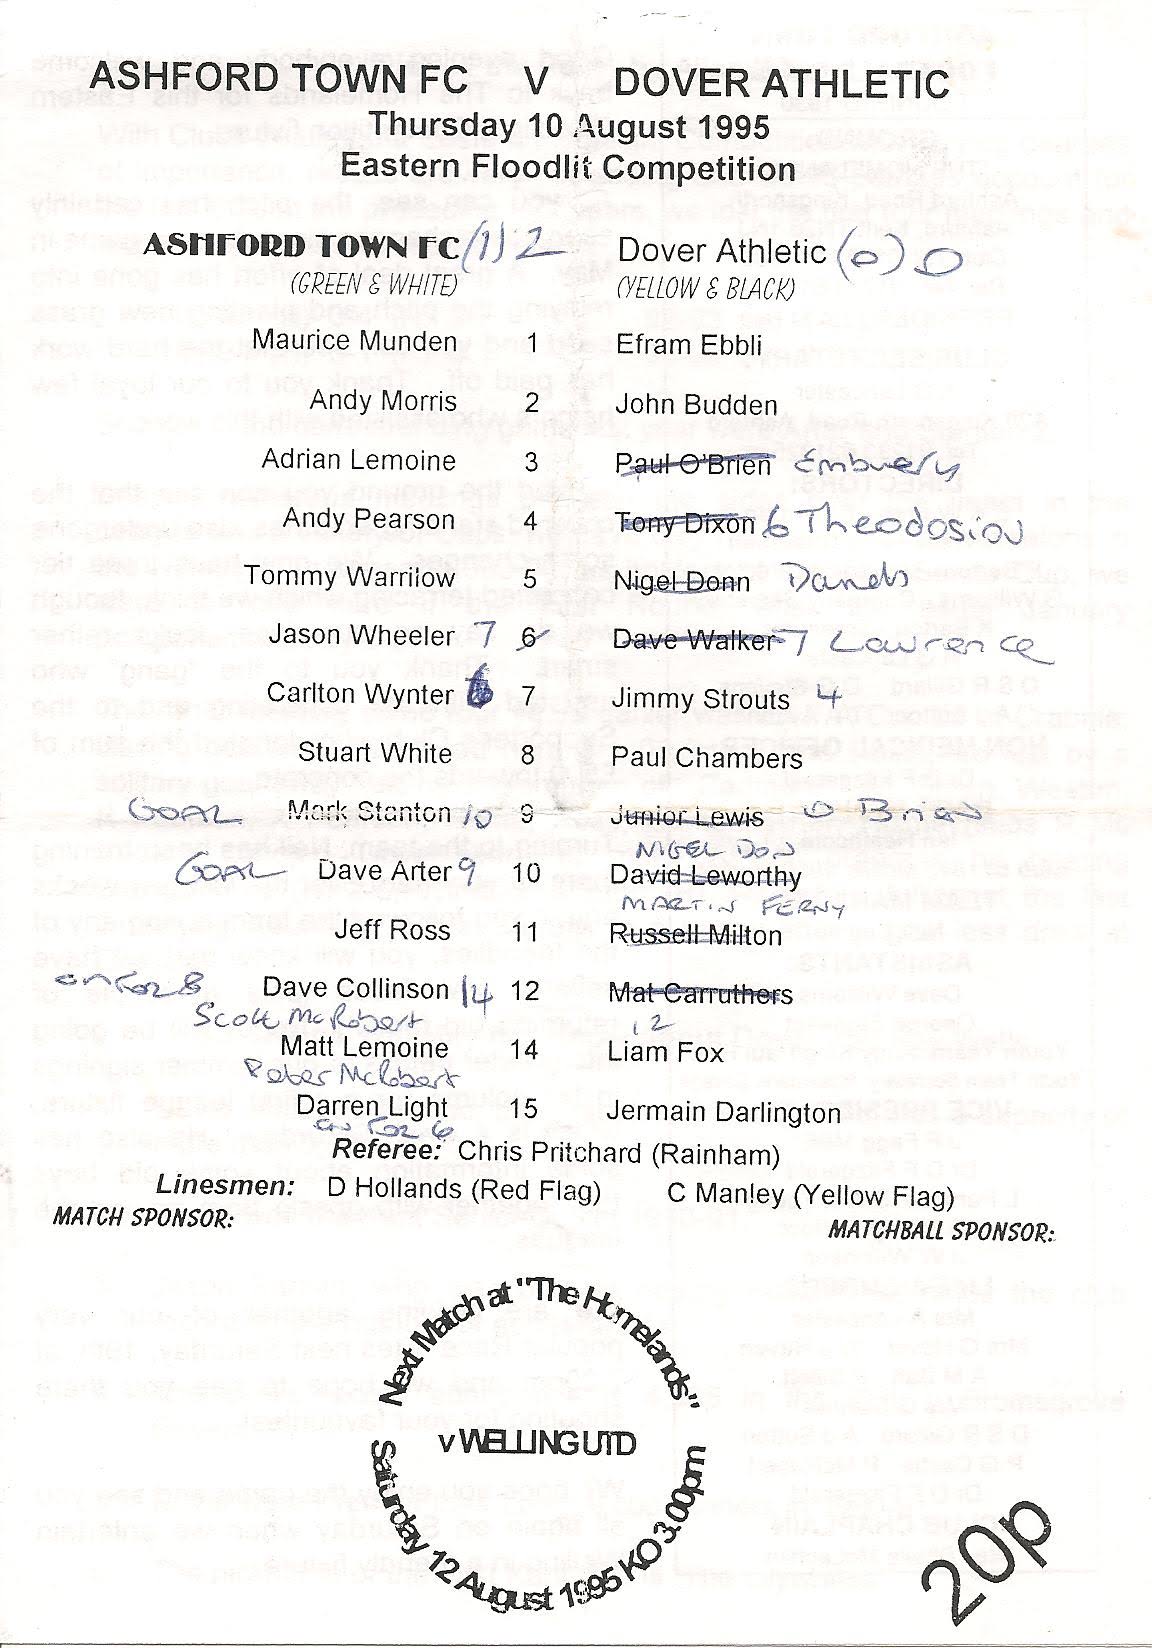 ASHFORD TOWN FC V DOVER ATHLETIC
Thursday 10 August 1995
Eastern Floodlit Competition
ASHFORD TOWN FC (1) 2 Dover Athletic (0) 0
(GREEN & WHITE) (YELLOW & BLACK)
Maurice Munden 1 Efram Ebbli
Andy Morris 2 John Budden
Adrian Lemoine 3 Paul O'Brien Embuery
Andy Pearson 4 Tony Dixon 6 Theodosiou
Tommy Warrilow 5 Nigel Donn
Jason Wheeler 7 6 Dave Walker 7 Lawrence
Carlton Wynter 6 7 Jimmy Strouts 4
Stuart White 8 Paul Chambers
GOAL Mark Stanton 10 9 Junior Lewis O Brien
NIGEL DON
GOAL Dave Arter 9 10 David Leworthy
MARTIN FERNY
Jeff Ross 11 Russell Milton
on FOR 8 Dave Collinson 14 12 Mat Carruthers
Scott McRobert 12
Matt Lemoine 14 Liam Fox
Peter McRobert
Darren Light 15 Jermain Darlington
on FOR 6
Referee: Chris Pritchard (Rainham)
Linesmen: D Hollands (Red Flag) C Manley (Yellow Flag)
MATCH SPONSOR: MATCHBALL SPONSOR:
Next Match at "The Homelands"
v WELLING UTD
Saturday 12 August 1995 KO 3.00pm
20p